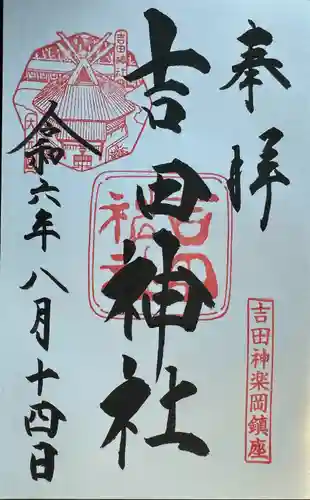 奉拝
吉田神楽岡鎮座
吉田神社
吉田神社
吉田神社
令和六年八月十四日